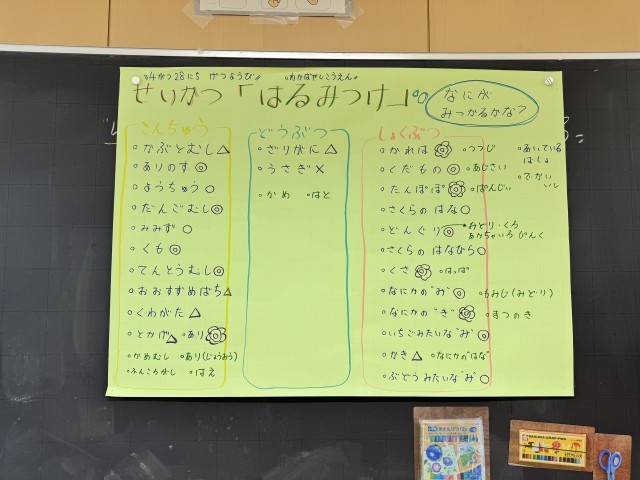 4がつ28にち げつようび
わかばやしこうえん
せいかつ「はるみつけ」
なにが
みつかるかな?
こんちゅう
かぶとむし△
ありのす◎
ようちゅう○
だんごむし◎
みみず○
くも◎
てんとうむし◎
おおすずめばち△
くわがた△
とかげ△ あり
かめむし あり(じょうおう)
ふんころがし はえ
どうぶつ
ざりがに△
うさぎ×
かめ はと
しょくぶつ
かれは つつじ
くだもの◎ あじさい
たんぽぽ ぱんじぃ
さくらの はな○
どんぐり◎ みどり・くろ
あかちゃいろ・ぴんく
さくらの はなびら○
くさ はっぱ
なにかの"み"◎ もみじ(みどり)
なにかの"き" まつのき
いちごみたいな"み"◎
かき△ なにかの"はな"
ぶどうみたいな"み"○
あいている
ばしょ
でかい
いし